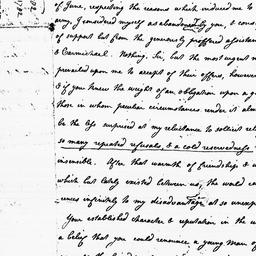 of June, respecting the reasons which induced me to
army, I considered myself as abandoned by you, & cons
of support but from the generously proffered assistan
& Carmichael. Nothing, Sir, but the most urgent n
prevailed upon me to accept of their offers, however
& if you knew the weight of an obligation upon a g
those in whom peculiar circumstances render it alm
be the less surprised at my reluctance to solicit reli
so many repeated refusals, & a cold reservedness
insensible. After that warmth of friendship & u
which but lately existed between us, the world ca
ences infinitely to my disadvantage at so unexp
Your established character & reputation in the w
a belief that you could renounce a young man of